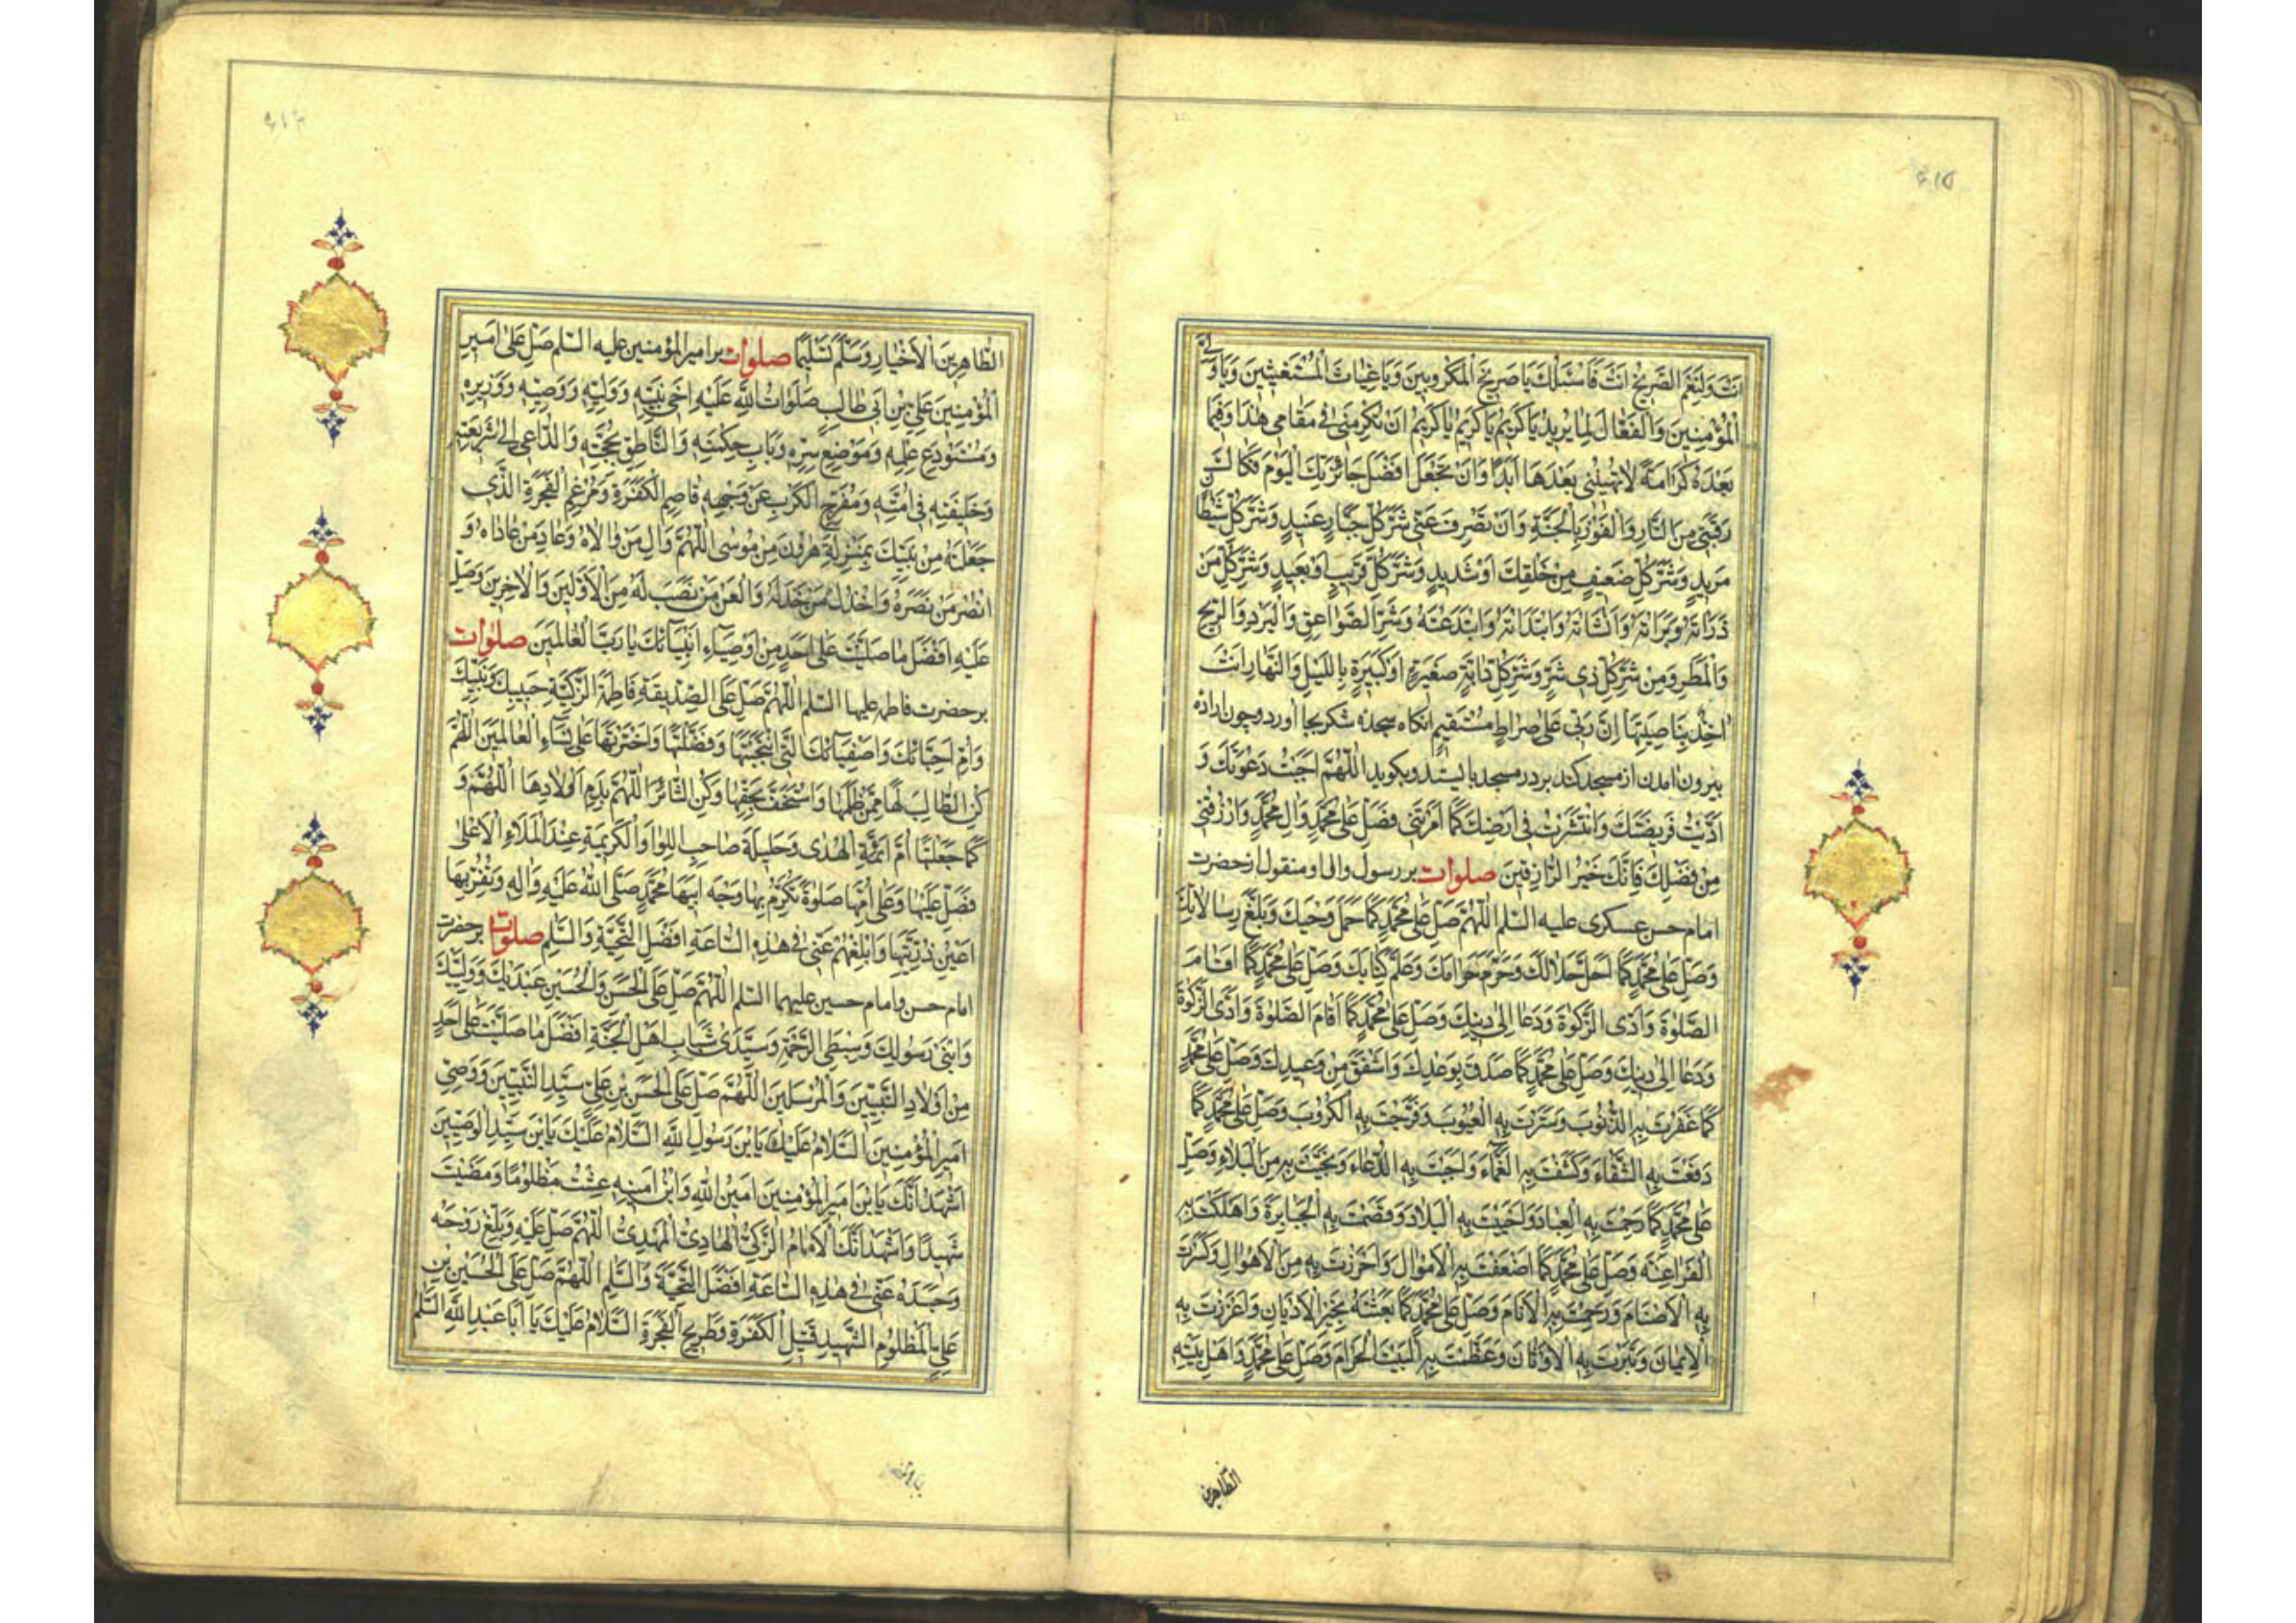 ۶۱۵
انت ولنعم الصریخ انت فاسئلک یا صریخ المکروبین ویا غیاث المستغیثین ویا ولی
المؤمنین والفعال لما یرید یا کریم یا کریم یا کریم ان تکرمنی فی مقامی هذا وفیما
بعده کرامة لا تهیننی بعدها ابدا وان تجعل افضل جائزتک الیوم فکاک
رقبتی من النار والفوز بالجنة وان تصرف عنی شر کل جبار عنید وشر کل شیطان
مرید وشر کل ضعیف من خلقک او شدید وشر کل قریب او بعید وشر کل من
ذراته وبراته وانشاته وابتداته وابتدعته ومن شر الصواعق والبرد والریح
والمطر ومن شر کل ذی شر وشر کل دابة صغیرة او کبیرة باللیل والنهار انت
اخذ بناصیتها ان ربی علی صراط مستقیم انکاه سجده شکر بجا آورد وچون اراده
بیرون امدن از مسجد کند بر در مسجد بایستد وبکوید اللهم اجبت دعوتک و
ادیت فریضتک وانتشرت فی ارضک کما امرتنی فصل علی محمد وال محمد وارزقنی
من فضلک فانک خیر الرازقین صلوات بر رسول وال او منقول از حضرت
امام حسن عسکری علیه السلم اللهم صل علی محمد کما حمل وحیک وبلغ رسالاتک
وصل علی محمد کما احل حلالک وحرم حرامک وعلم کتابک وصل علی محمد کما اقام
الصلوة وادی الزکوة ودعا الی دینک وصل علی محمد کما اقام الصلوة وادی الزکوة
ودعا الی دینک وصل علی محمد کما صدق بوعدک واشفق من وعیدک وصل علی محمد
کما غفرت به الذنوب وسترت به العیوب وفرجت به الکروب وصل علی محمد کما
دفعت به الشقاء وکشفت به الغماء واجبت به الدعاء ونجیت به من البلاء وصل
علی محمد کما رحمت به العباد واحییت به البلاد وقصمت به الجبابرة واهلکت به
الفراعنه وصل علی محمد کما اضعفت به الاموال واحرزت به من الاهوال وکسرت
به الاصنام ورحمت به الانام وصل علی محمد کما بعثته بخیر الادیان واعززت به
الایمان وتبرت به الاوثان وعظمت به البیت الحرام وصل علی محمد واهل بیته
الطاهرین
۶۱۶
الطاهرین الاخیار وسلم تسلیما صلوات بر امیر المؤمنین علیه السلم صل علی امیر
المؤمنین علی بن ابی طالب صلوات الله علیه اخی نبیه وولیه ووصیه ووزیره
ومستودع علمه وموضع سره وباب حکمته والناطق بحجته والداعی الی شریعته
وخلیفته فی امته ومفرج الکرب عن وجهه قاصم الکفرة ومرغم الفجرة الذی
جعلته من نبیک بمنزلة هرون من موسی اللهم وال من والاه وعاد من عاداه و
انصر من نصره واخذل من خذله والعن من نصب له من الاولین والاخرین وصل
علیه افضل ما صلیت علی احد من اوصیاء انبیائک یا رب العالمین صلوات
بر حضرت فاطمه علیها السلم اللهم صل علی الصدیقة فاطمة الزکیة حبیبک ونبیک
وام احبائک واصفیائک التی انتجبتها وفضلتها واخترتها علی نساء العالمین اللهم
کن الطالب لها ممن ظلمها واستخف بحقها وکن الثائر اللهم بدم اولادها اللهم و
کما جعلتها ام ائمة الهدی وحلیلة صاحب اللوا والکریمة عند الملاء الاعلی
فصل علیها وعلی امها صلوة تکرم بها وجه ابیها محمد صلی الله علیه واله وتقر بها
اعین ذریتها وابلغهم عنی فی هذه الساعة افضل التحیة والسلم صلوات بر حضرت
امام حسن وامام حسین علیهما السلم اللهم صل علی الحسن والحسین عبدیک وولییک
وابنی رسولک وسبطی الرحمة وسیدی شباب اهل الجنة افضل ما صلیت علی احد
من اولاد النبیین والمرسلین اللهم صل علی الحسن بن علی سید النبیین ووصی
امیر المؤمنین السلام علیک یا بن رسول الله السلام علیک یا بن سید الوصیین
اشهد انک یا بن امیر المؤمنین امین الله وابن امینه عشت مظلوما ومضیت
شهیدا واشهد انک الامام الزکی الهادی المهدی اللهم صل علیه وبلغ روحه
وجسده عنی فی هذه الساعة افضل التحیة والسلم اللهم صل علی الحسین بن
علی المظلوم الشهید قتیل الکفرة وطریح الفجرة السلام علیک یا ابا عبد الله السلم